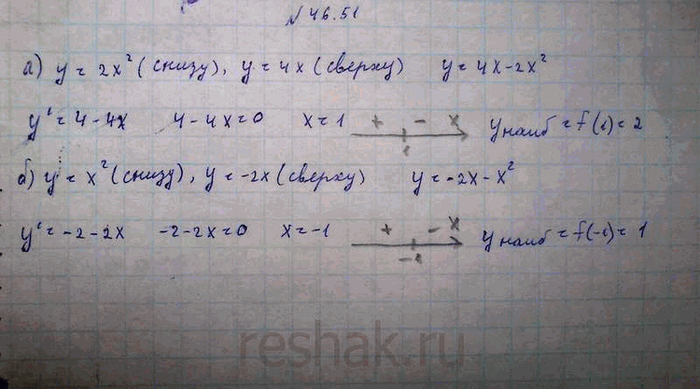 №46.51
а) y = 2x² (снизу), y = 4x (сверху) y = 4x - 2x²
y' = 4 - 4x 4 - 4x = 0 x = 1 + - x 1 y наиб = f(1) = 2
б) y = x² (снизу), y = -2x (сверху) y = -2x - x²
y' = -2 - 2x -2 - 2x = 0 x = -1 + - x -1 y наиб = f(-1) = 1
reshak.ru